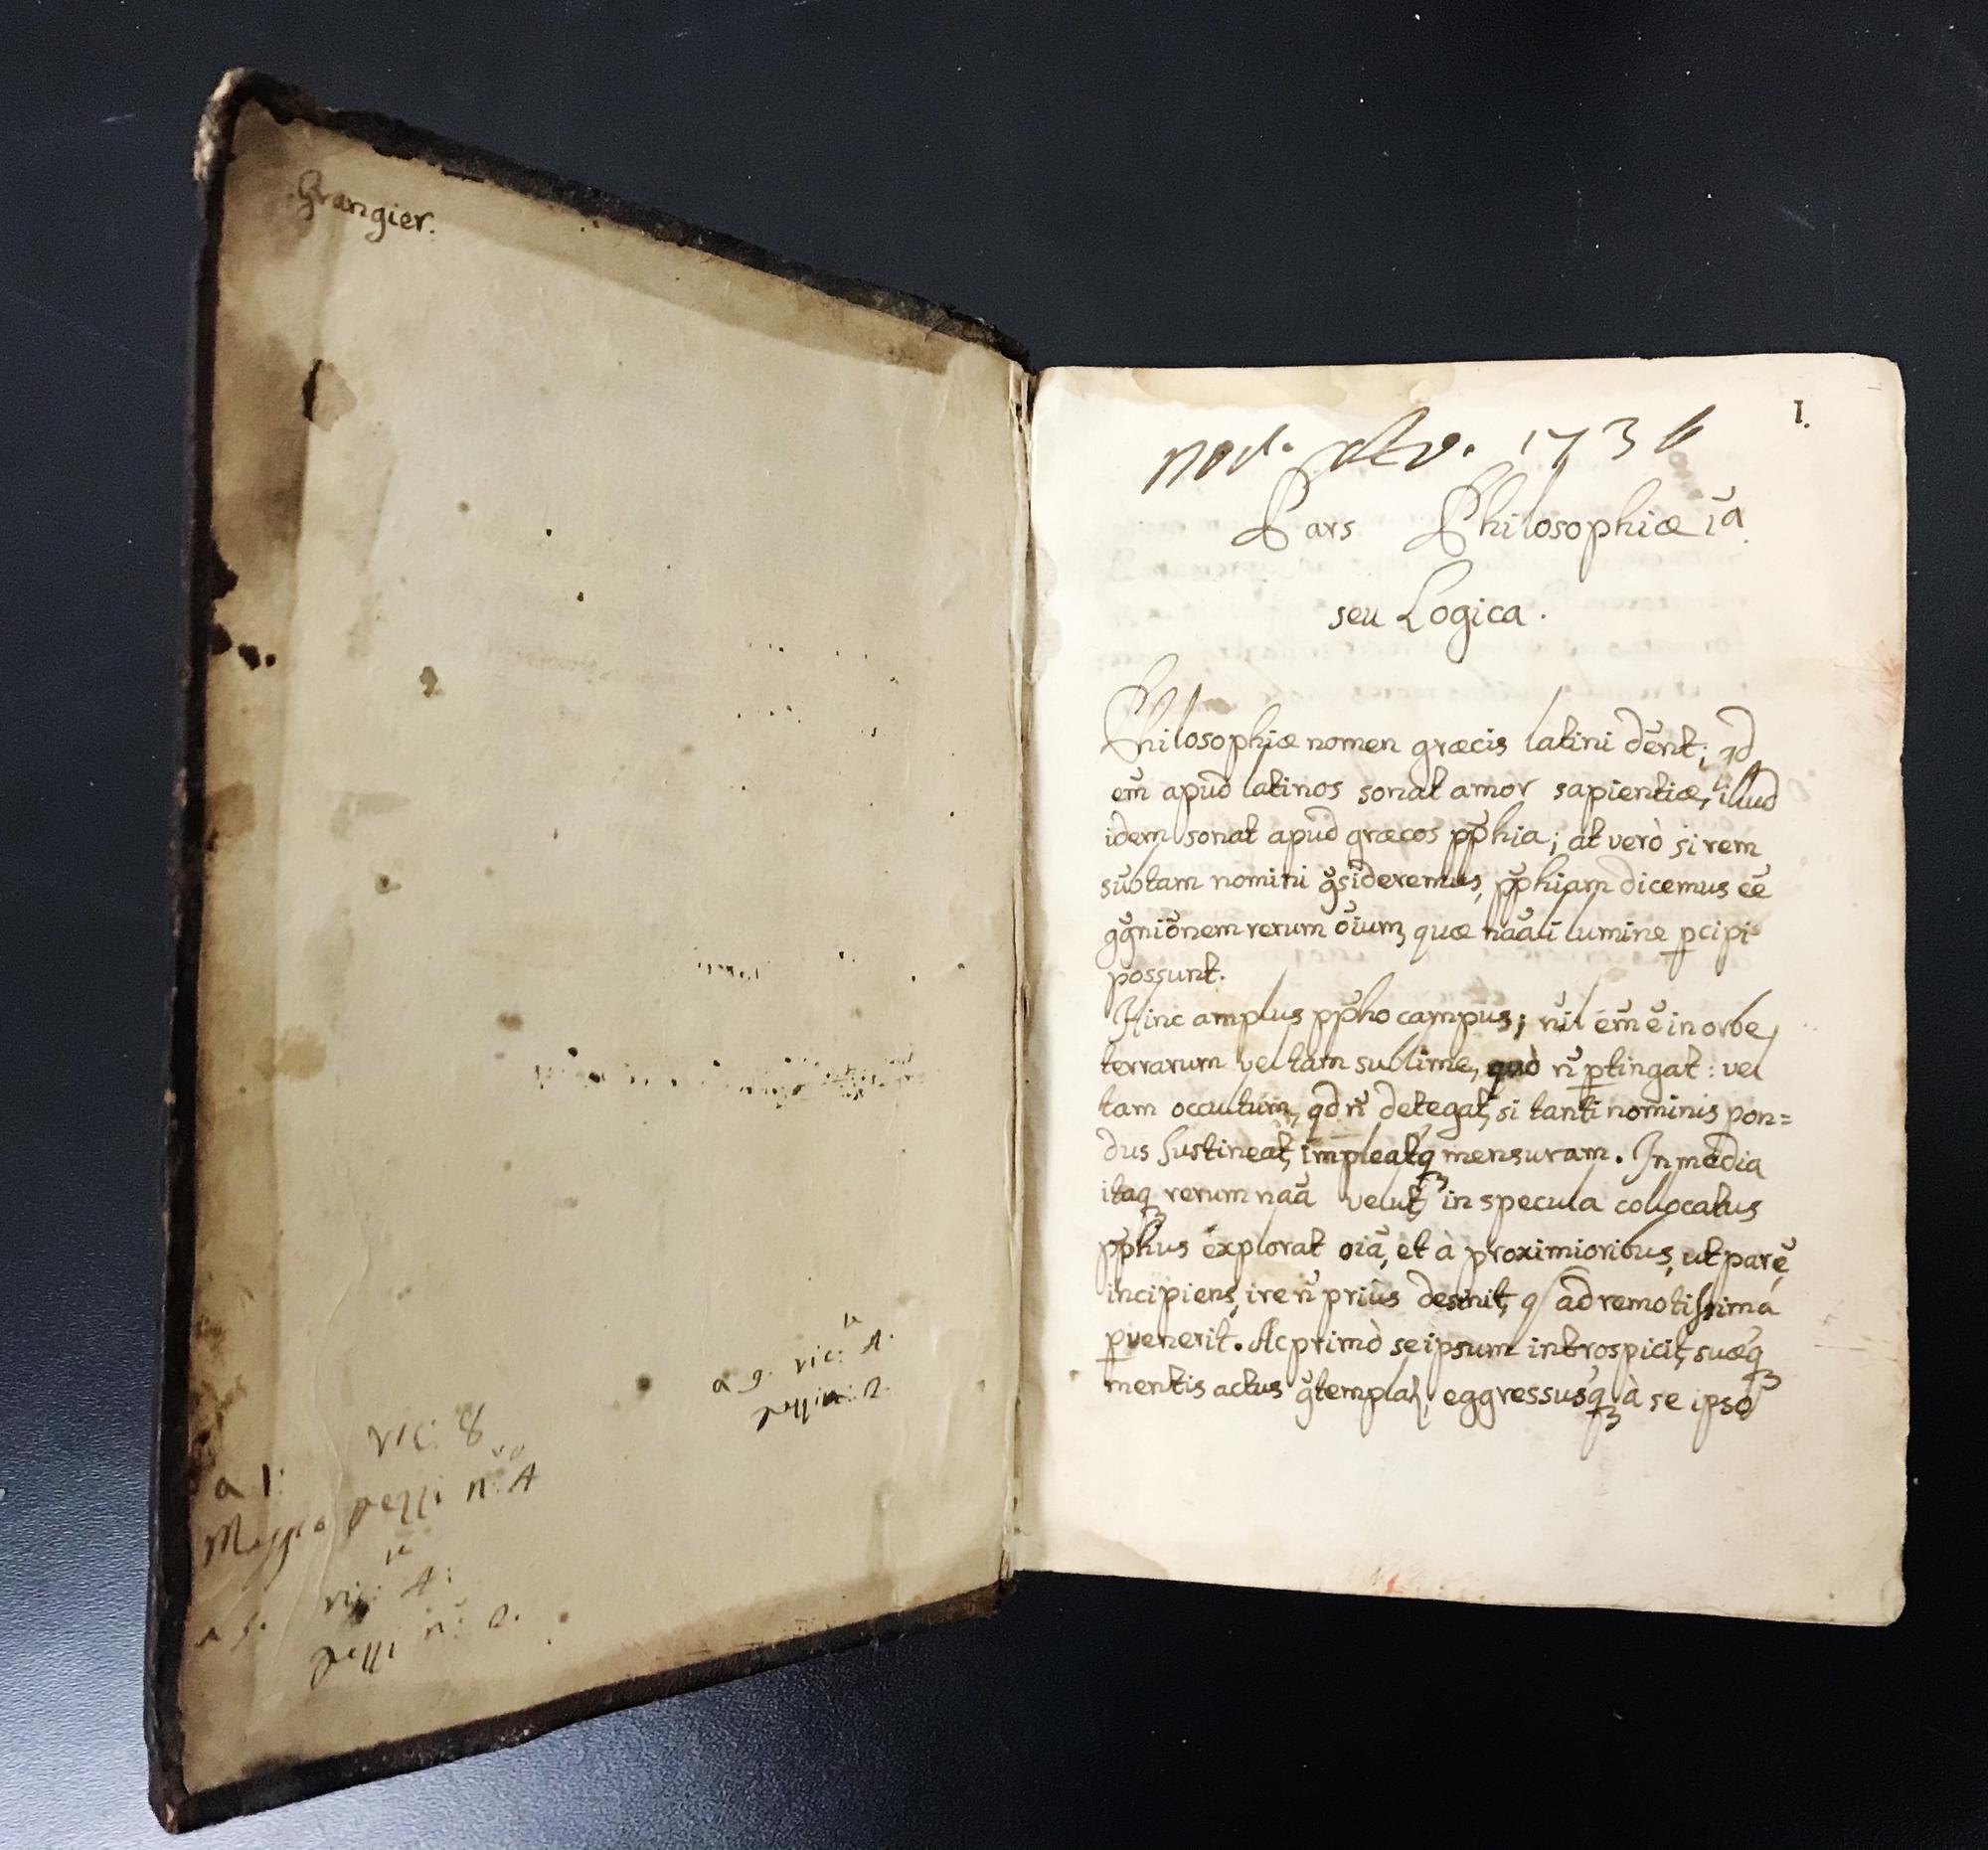 Grangier.
a 9. vic: A.
vic: 8
a 1:
pezzi n: A
vic: A:
a 5.
pezzi n: 2.
I.
1736
Pars Philosophiæ 1ā.
seu Logica.
Philosophiæ nomen græcis latini dēnt; qd
em̄ apud latinos sonat amor sapientiæ, illud
idem sonat apud græcos pp̄hia; at verò si rem
sūbtam nomini ḡsideremus, pp̄hiam dicemus ēē
gḡniōnem rerum ōium, quæ nāāli lumine pcipi
possunt.
Hinc amplus pp̄ho campus; nil̄ ēm ē in orbe
terrarum vel tam sublime, quò n̄ ptingat: vel
tam occultum, qd n̄ detegat, si tanti nominis pon=
dus sustineat, impleatq mensuram. In media
itaq rerum naā velut in specula collocatus
pp̄hus explorat oiā, et à proximioribus, ut par ē,
incipiens, ire n̄ priùs desinit, q ad remotissima
pvenerit. Ac primò se ipsum introspicit, suæq
mentis actus ḡtemplat, eggressusq à se ipso